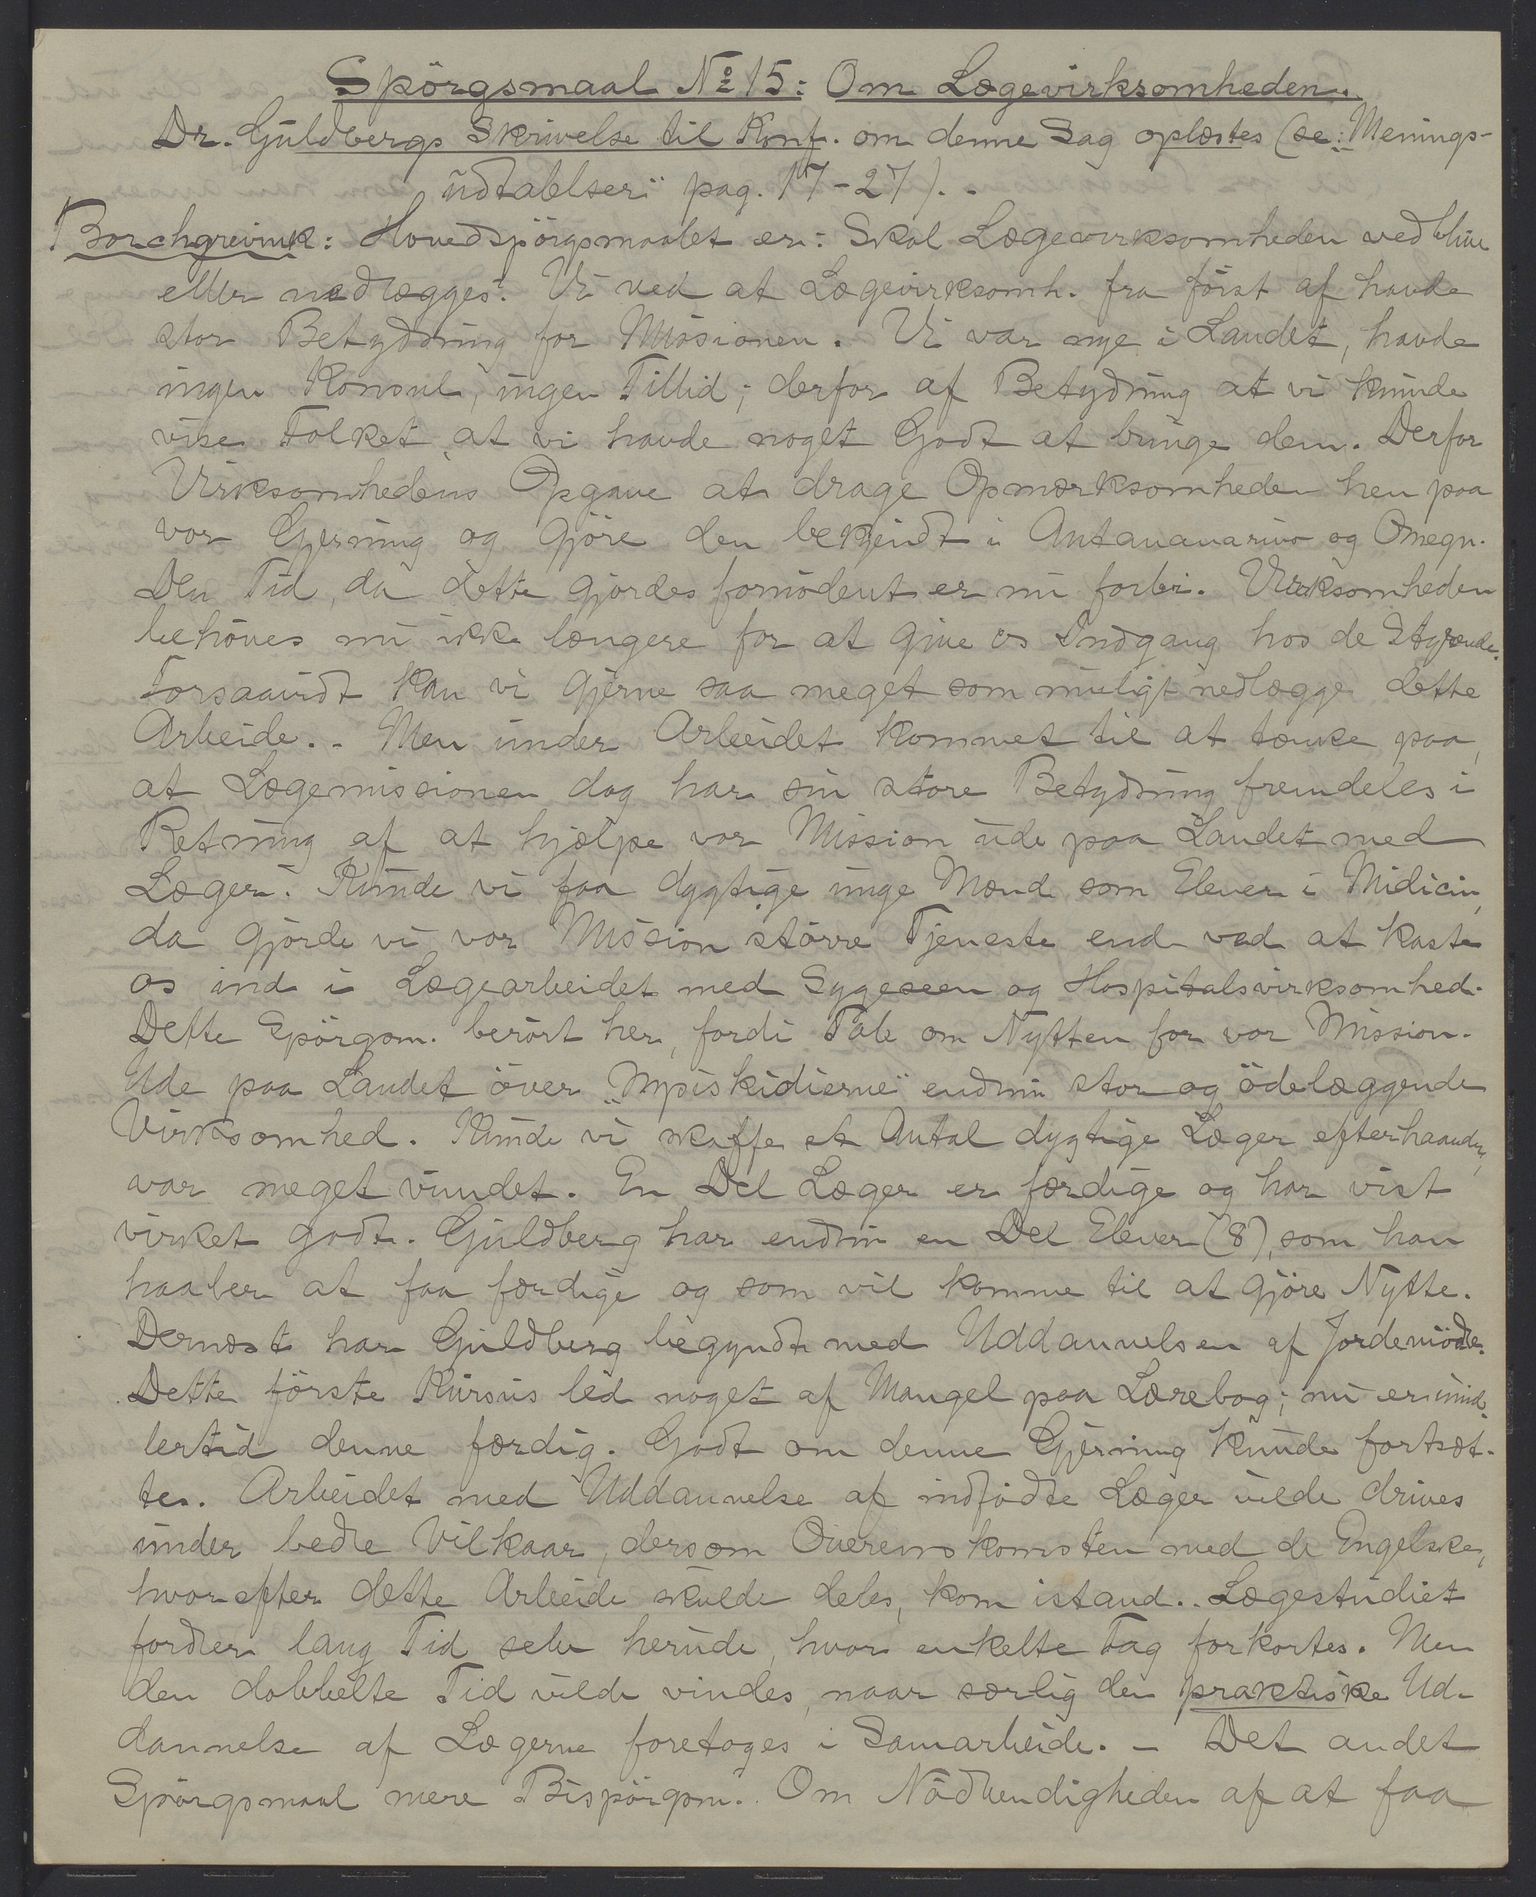 Spörgsmaal No 15: Om Lægevirksomheden.
Dr. Guldbergs Skrivelse til Konf. om denne Sag oplæstes (se: Menings-
udtalelser" pag. 17-27). -
Borchgrevink: Hovedspörgsmaalet er: Skal Lægevirksomheden vedblive
eller nedlægges? Vi ved at Lægevirksomh. fra först af havde
stor Betydning for Missionen. Vi var nye i Landet, havde
ingen Konsul, ingen Tillid; derfor af Betydning at vi kunde
vise Folket at vi havde noget Godt at bringe dem. Derfor
Virksomhedens Opgave at drage Opmærksomheden hen paa
vor Gjerning og gjöre den bekjendt i Antananarivo og Omegn.
Den Tid, da dette gjordes fornödent er nu forbi. Virksomheden
behöves nu ikke længere for at give os Indgang hos de Styrende.
Forsaavidt kan vi gjerne saa meget som muligt nedlægge dette
Arbeide. - Men under Arbeidet kommet til at tænke paa,
at Lægemissionen dog har sin store Betydning fremdeles i
Retning af at hjælpe vor Mission ude paa Landet med
Læger. Kunde vi faa dygtige unge Mænd som Elever i Midicin,
da gjorde vi vor Mission större Tjeneste end ved at kaste
os ind i Lægearbeidet med Sygeseen og Hospitalsvirksomhed.
Dette Spörgsm. berört her, fordi Tale om Nytten for vor Mission.
Ude paa Landet över "Mpiskidierne" endnu stor og ödelæggende
Virksomhed. Kunde vi skaffe et Antal dygtige Læger efterhaanden,
var meget vundet. En Del Læger er færdige og har vist
virket godt. Guldberg har endnu en Del Elever (8), som han
haaber at faa færdige og som vil komme til at gjöre Nytte.
Dernæst har Guldberg begyndt med Uddannelsen af Jordemödre.
Dette förste Kursus led noget af Mangel paa Lærebog; nu er imid-
lertid denne færdig. Godt om denne Gjerning kunde fortsæt-
tes. Arbeidet med Uddannelse af indfödte Læger vilde drives
under bedre Vilkaar, dersom Overenskomsten med de Engelske,
hvorefter dette Arbeide skulde deles, kom istand.. Lægestudiet
fordrer lang Tid selv herude, hvor enkelte Fag forkortes. Men
den dobbelte Tid vilde vindes, naar særlig den praktiske Ud-
dannelse af Lægerne foretoges i Samarbeide. - Det andet
Spörgsmaal mere Bispörgsm. Om Nödvendigheden af at faa